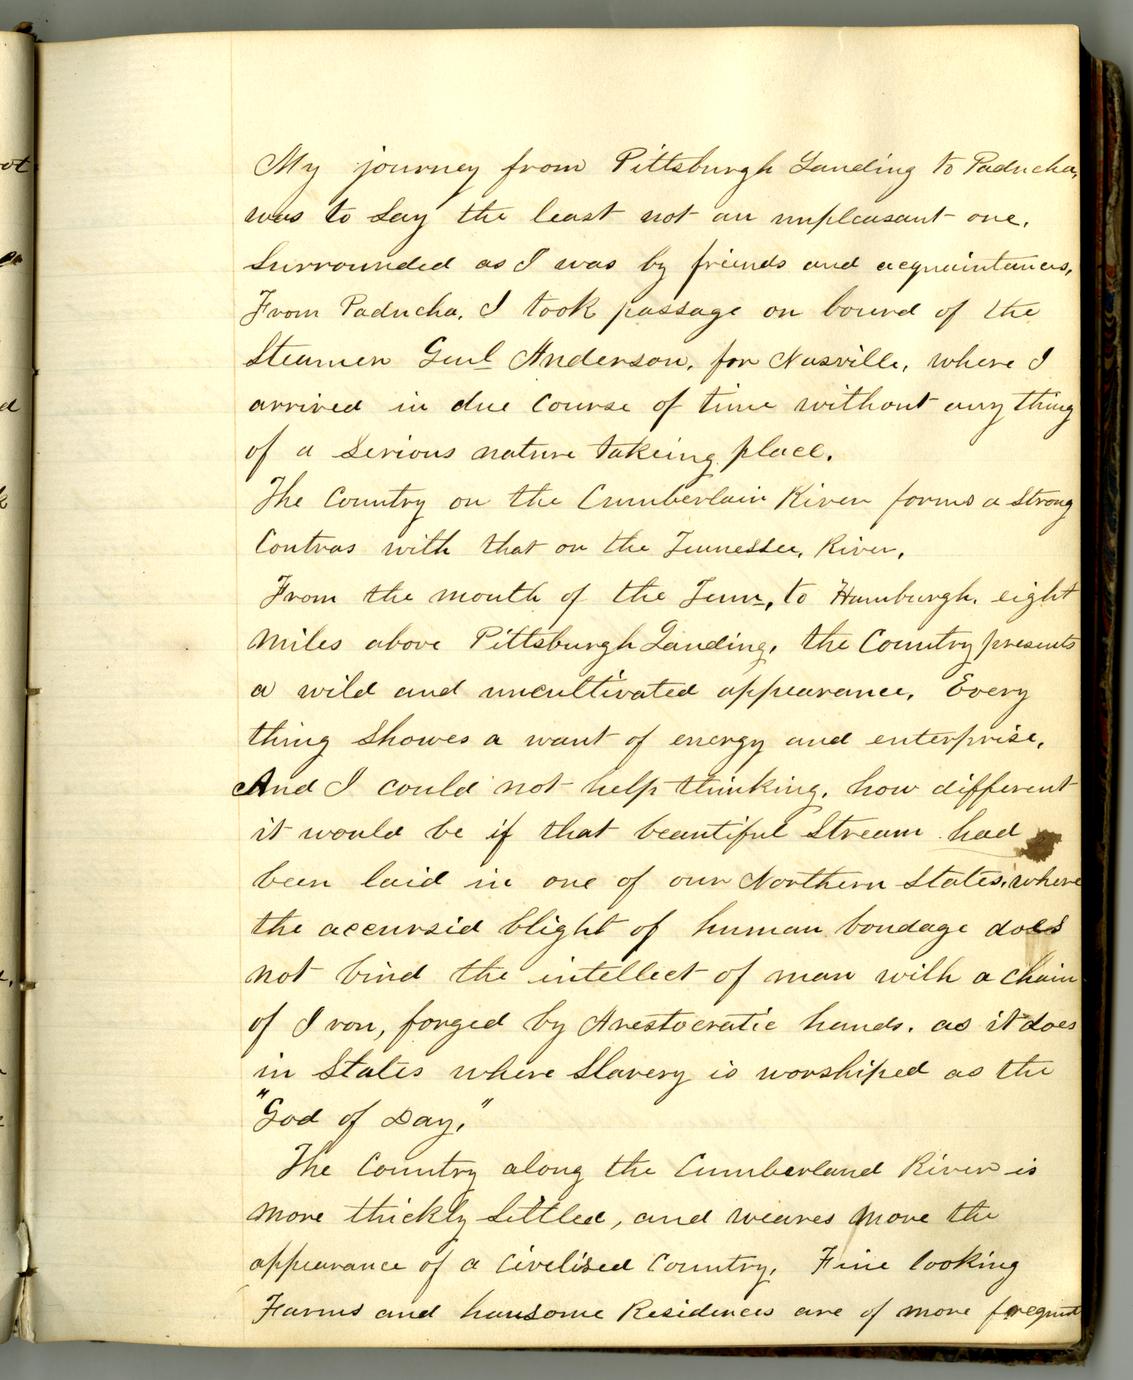 My journey from Pittsburgh Landing to Paducha,
was to say the least not an unpleasant one,
surrounded as I was by friends and acquaintances,
From Paducha, I took passage on bourd of the
Steamer Genl Anderson, for Nasville, where I
arrived in due Course of time without any thing
of a serious nature takeing place.
The Country on the Cumberlain River forms a strong
Contras with that on the Tennessee, River,
From the mouth of the Tenn, to Hamburgh, eight
Miles above Pittsburgh Landing, the Country presents
a wild and uncultivated appearance, Every
thing Showes a want of energy and enterprise,
And I could not help thinking, how different
it would be if that beautiful Stream had
been laid in one of our Northern States, where
the accursid blight of human bondage does
not bind the intellect of man with a chain
of Iron, forged by Arestocratic hands, as it does
in States where Slavery is worshiped as the
"God of Day,"
The Country along the Cumberland River is
More thickly Settled, and weares More the
appearance of a Civelised Country, Fine looking
Farms and hansome Residences are of more freequnt